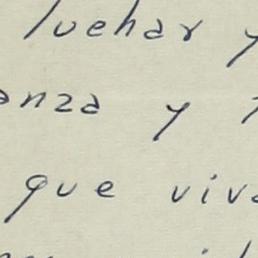 luchar y
anza y
que viv